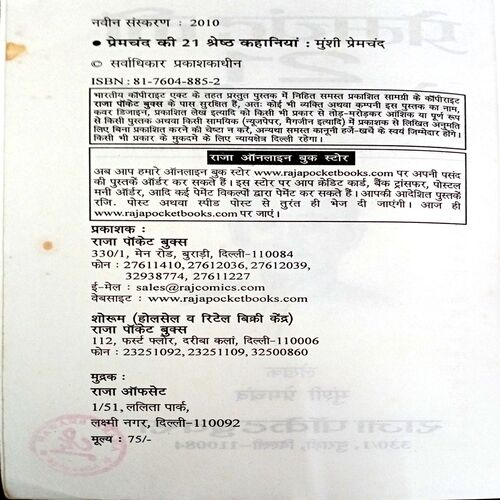 नवीन संस्करण : 2010
• प्रेमचंद की 21 श्रेष्ठ कहानियां : मुंशी प्रेमचंद
© सर्वाधिकार प्रकाशकाधीन
ISBN : 81-7604-885-2
भारतीय कॉपीराइट एक्ट के तहत प्रस्तुत पुस्तक में निहित समस्त प्रकाशित सामग्री के कॉपीराइट
राजा पॉकेट बुक्स के पास सुरक्षित हैं, अतः कोई भी व्यक्ति अथवा कम्पनी इस पुस्तक का नाम,
कवर डिजाइन, प्रकाशित लेख इत्यादि को किसी भी प्रकार से तोड़-मरोड़कर आंशिक या पूर्ण रूप
से किसी पुस्तक अथवा किसी सामयिक (न्यूजपेपर, मैगजीन इत्यादि) में प्रकाशक से लिखित अनुमति
लिए बिना प्रकाशित करने की चेष्टा न करें, अन्यथा समस्त कानूनी हर्जे-खर्चे के स्वयं जिम्मेदार होंगे।
किसी भी प्रकार के मुकदमे के लिए न्यायक्षेत्र दिल्ली रहेगा।
राजा ऑनलाइन बुक स्टोर
अब आप हमारे ऑनलाइन बुक स्टोर www.rajapocketbooks.com पर अपनी पसंद
की पुस्तकें ऑर्डर कर सकते हैं। इस स्टोर पर आप क्रेडिट कार्ड, बैंक ट्रांसफर, पोस्टल
मनी ऑर्डर, आदि कई पेमेंट विकल्पों द्वारा पेमेंट कर सकते हैं। आपकी आदेशित पुस्तकें
रजि. पोस्ट अथवा स्पीड पोस्ट से तुरंत ही भेज दी जाएंगी। आज ही
www.rajapocketbooks.com पर जाएं।
प्रकाशक :
राजा पॉकेट बुक्स
330/1, मेन रोड, बुराड़ी, दिल्ली-110084
फोन : 27611410, 27612036, 27612039,
32938774, 27611227
ई-मेल : sales@rajcomics.com
वेबसाइट : www.rajapocketbooks.com
शोरूम (होलसेल व रिटेल बिक्री केंद्र)
राजा पॉकेट बुक्स
112, फर्स्ट फ्लोर, दरीबा कलां, दिल्ली-110006
फोन : 23251092, 23251109, 32500860
मुद्रक :
राजा ऑफसेट
1/51, ललिता पार्क,
लक्ष्मी नगर, दिल्ली-110092
मूल्य : 75/-